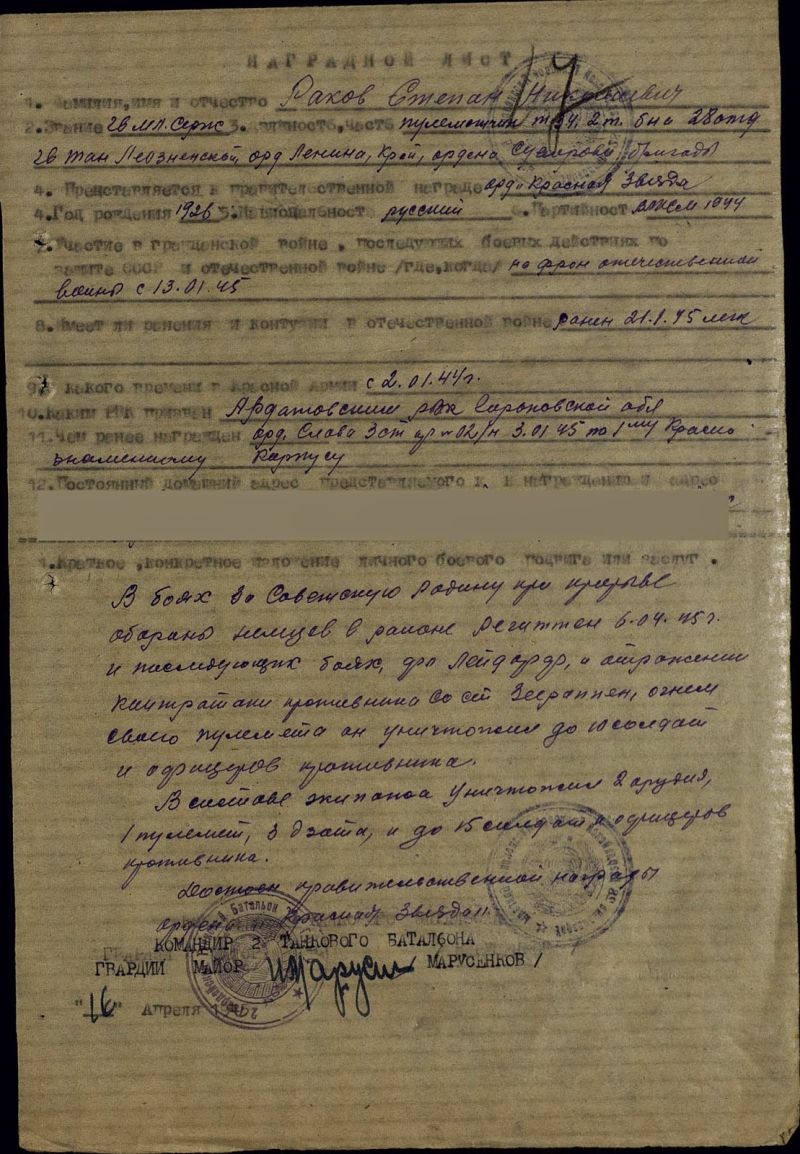 НАГРАДНОЙ ЛИСТ
1. Фамилия, имя и отчество Раков Степан
2. Звание гв мл. серж 3. Должность, часть пулеметчик т-34, 2 т. б-на 28 отд
гв тан Лиозненской, орд Ленина, Кр, ордена Суворова бригады
4. Представляется к правительственной награде орд "Красная Звезда
4. Год рождения 1926 5. Национальность русский 6. Партийност ВЛКСМ 1944
7. Участие в гражданской войне, последующих боевых действиях по
защите СССР и отечественной войне /где, когда/ на фрон отечественной
войны с 13.01.45
8. Имеет ли ранения и контузии в отечественной войне ранен 21.1.45 легк
9. С какого времени в Красной Армии с 2.01.44 г.
10. Каким РВК призван Ардатовским рвк обл
11. Чем ранее награжден орд. Слава 3 ст пр № 02/н 3.01 45 по 1му Красно
знаменному Корпусу
12. Постоянный домашний адрес представляемого к награждению и адрес
1. Краткое, конкретное изложение личного боевого подвига или заслуг.
В боях за Советскую Родину при прорыве
обороны немцев в районе Региттен 6.04.45 г.
и последующих боях, и отражении
контратаки противника со ст огнем
своего пулемета он уничтожил до 10 солдат
и офицеров противника.
В составе экипажа уничтожил 2 орудия,
1 пулемет, 3 дзота, и до 15 солдат и офицеров
противника.
Достоин правительственной награды
ордена "Красная Звезда".
КОМАНДИР 2 ТАНКОВОГО БАТАЛЬОНА
ГВАРДИИ МАЙОР /МАРУСЕНКОВ/
"16" Апреля